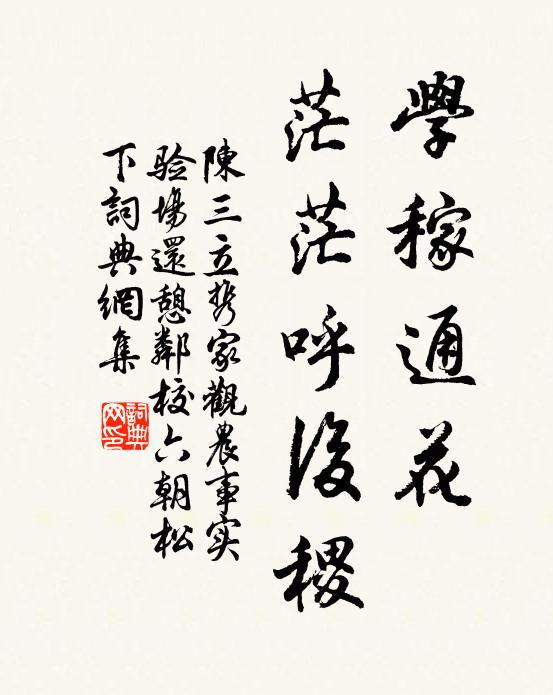 學稼通花
茫茫呼後稷
陳三立携家觀農事实
验場還憩鄰校六朝松
下詞典網集
詞典网印